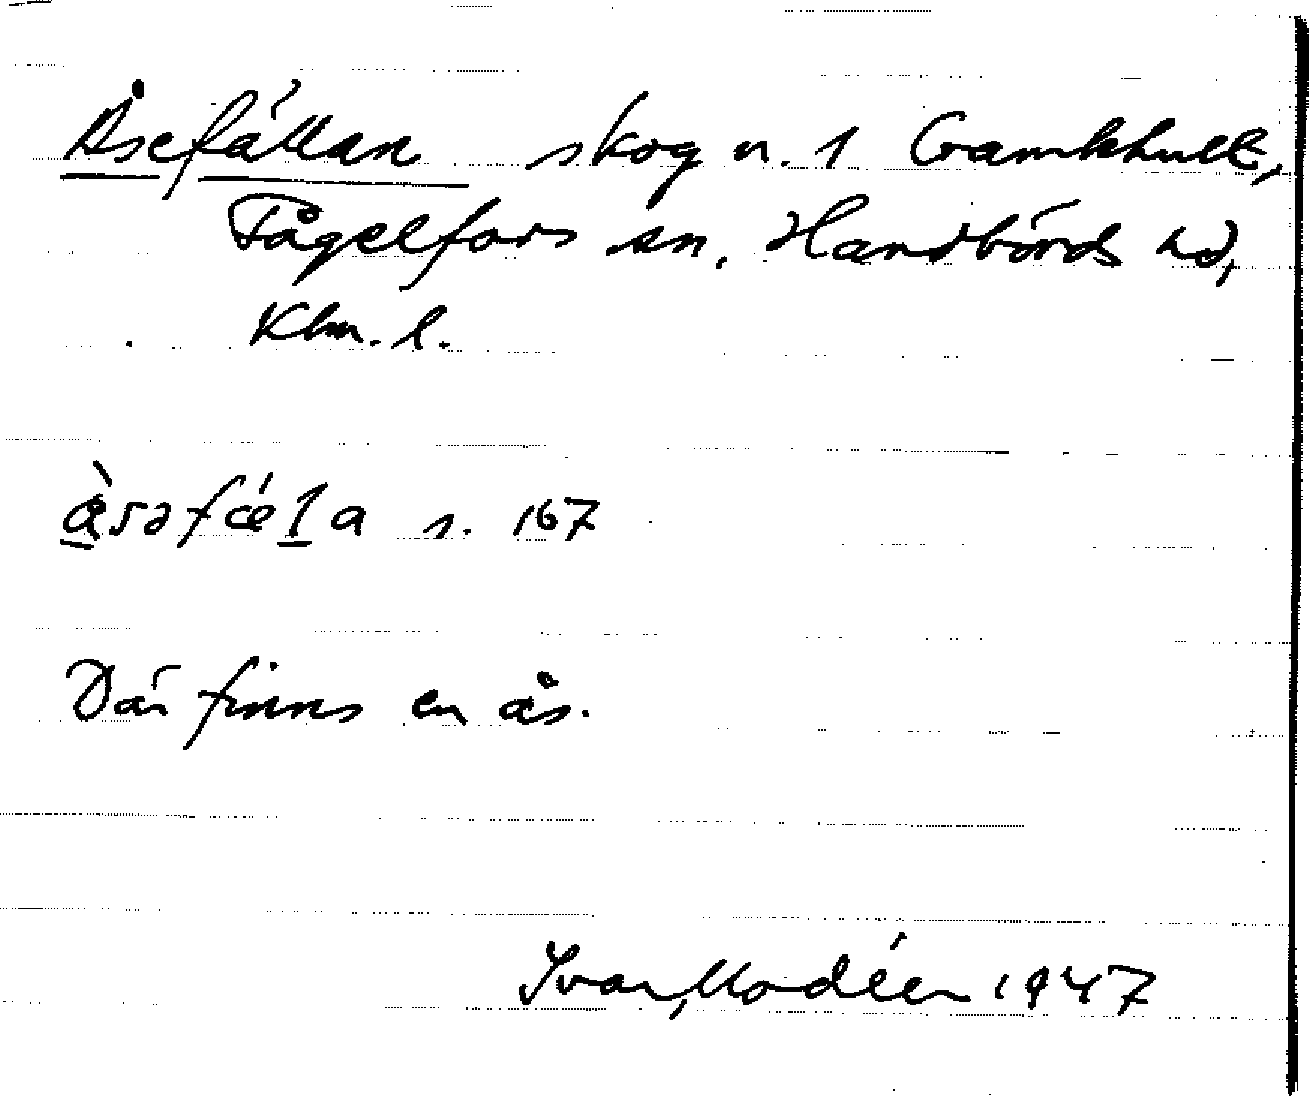 Åsefällan skog n. 1 Gamkhult,
Fågelfors sn, Handbörds hd,
Klm. l.
s. 167
Där finns en ås.
Ivar Modéer 1947